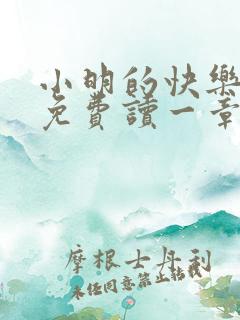 小明的快樂
免費讀一章
摩根士丹利
未經同意禁止轉載